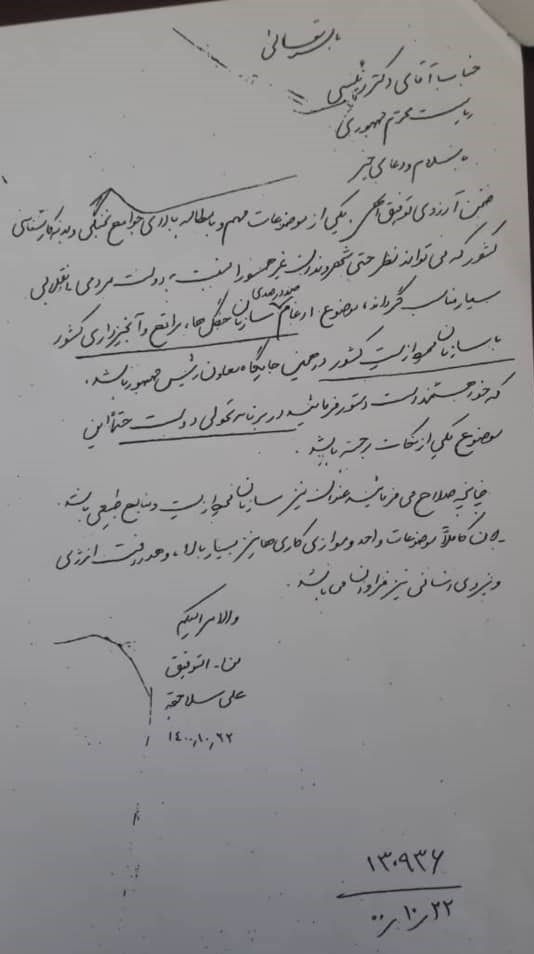 باسمه تعالی
جناب آقای دکتر رئیسی
ریاست محترم جمهوری
با سلام و دعای خیر
ضمن آرزوی توفیق الهی. یکی از موضوعات مهم و با مطالبه بالای جوامع نخبگی و بدنه کارشناسی
کشور که می تواند نظر حتی شهروندان غیر همسو را نسبت به دولت مردمی انقلابی
بسیار مناسب گرداند، موضوع. ادغام صددرصدی سازمان جنگل ها، مراتع و آبخیزداری کشور
با سازمان محیط زیست کشور در همین جایگاه معاون رئیس جمهور باشد.
که خواهشمند است دستور فرمائید در برنامه تحولی دولت حتماً این
موضوع یکی از نکات برجسته باشد.
چنانچه صلاح می فرمائید عنوان نیز سازمان محیط زیست و منابع طبیعی باشد.
چون کاملاً موضوعات واحد و موازی کاری ها نیز بسیار بالا، و هدررفت انرژی
و نیروی انسانی نیز فراوان می باشد.
والامر الیکم
و من ا... التوفیق
علی سلاجقه
۱۴۰۰/۱۰/۲۲
۱۳۰۹۳۶
۰۰/۱۰/۲۲